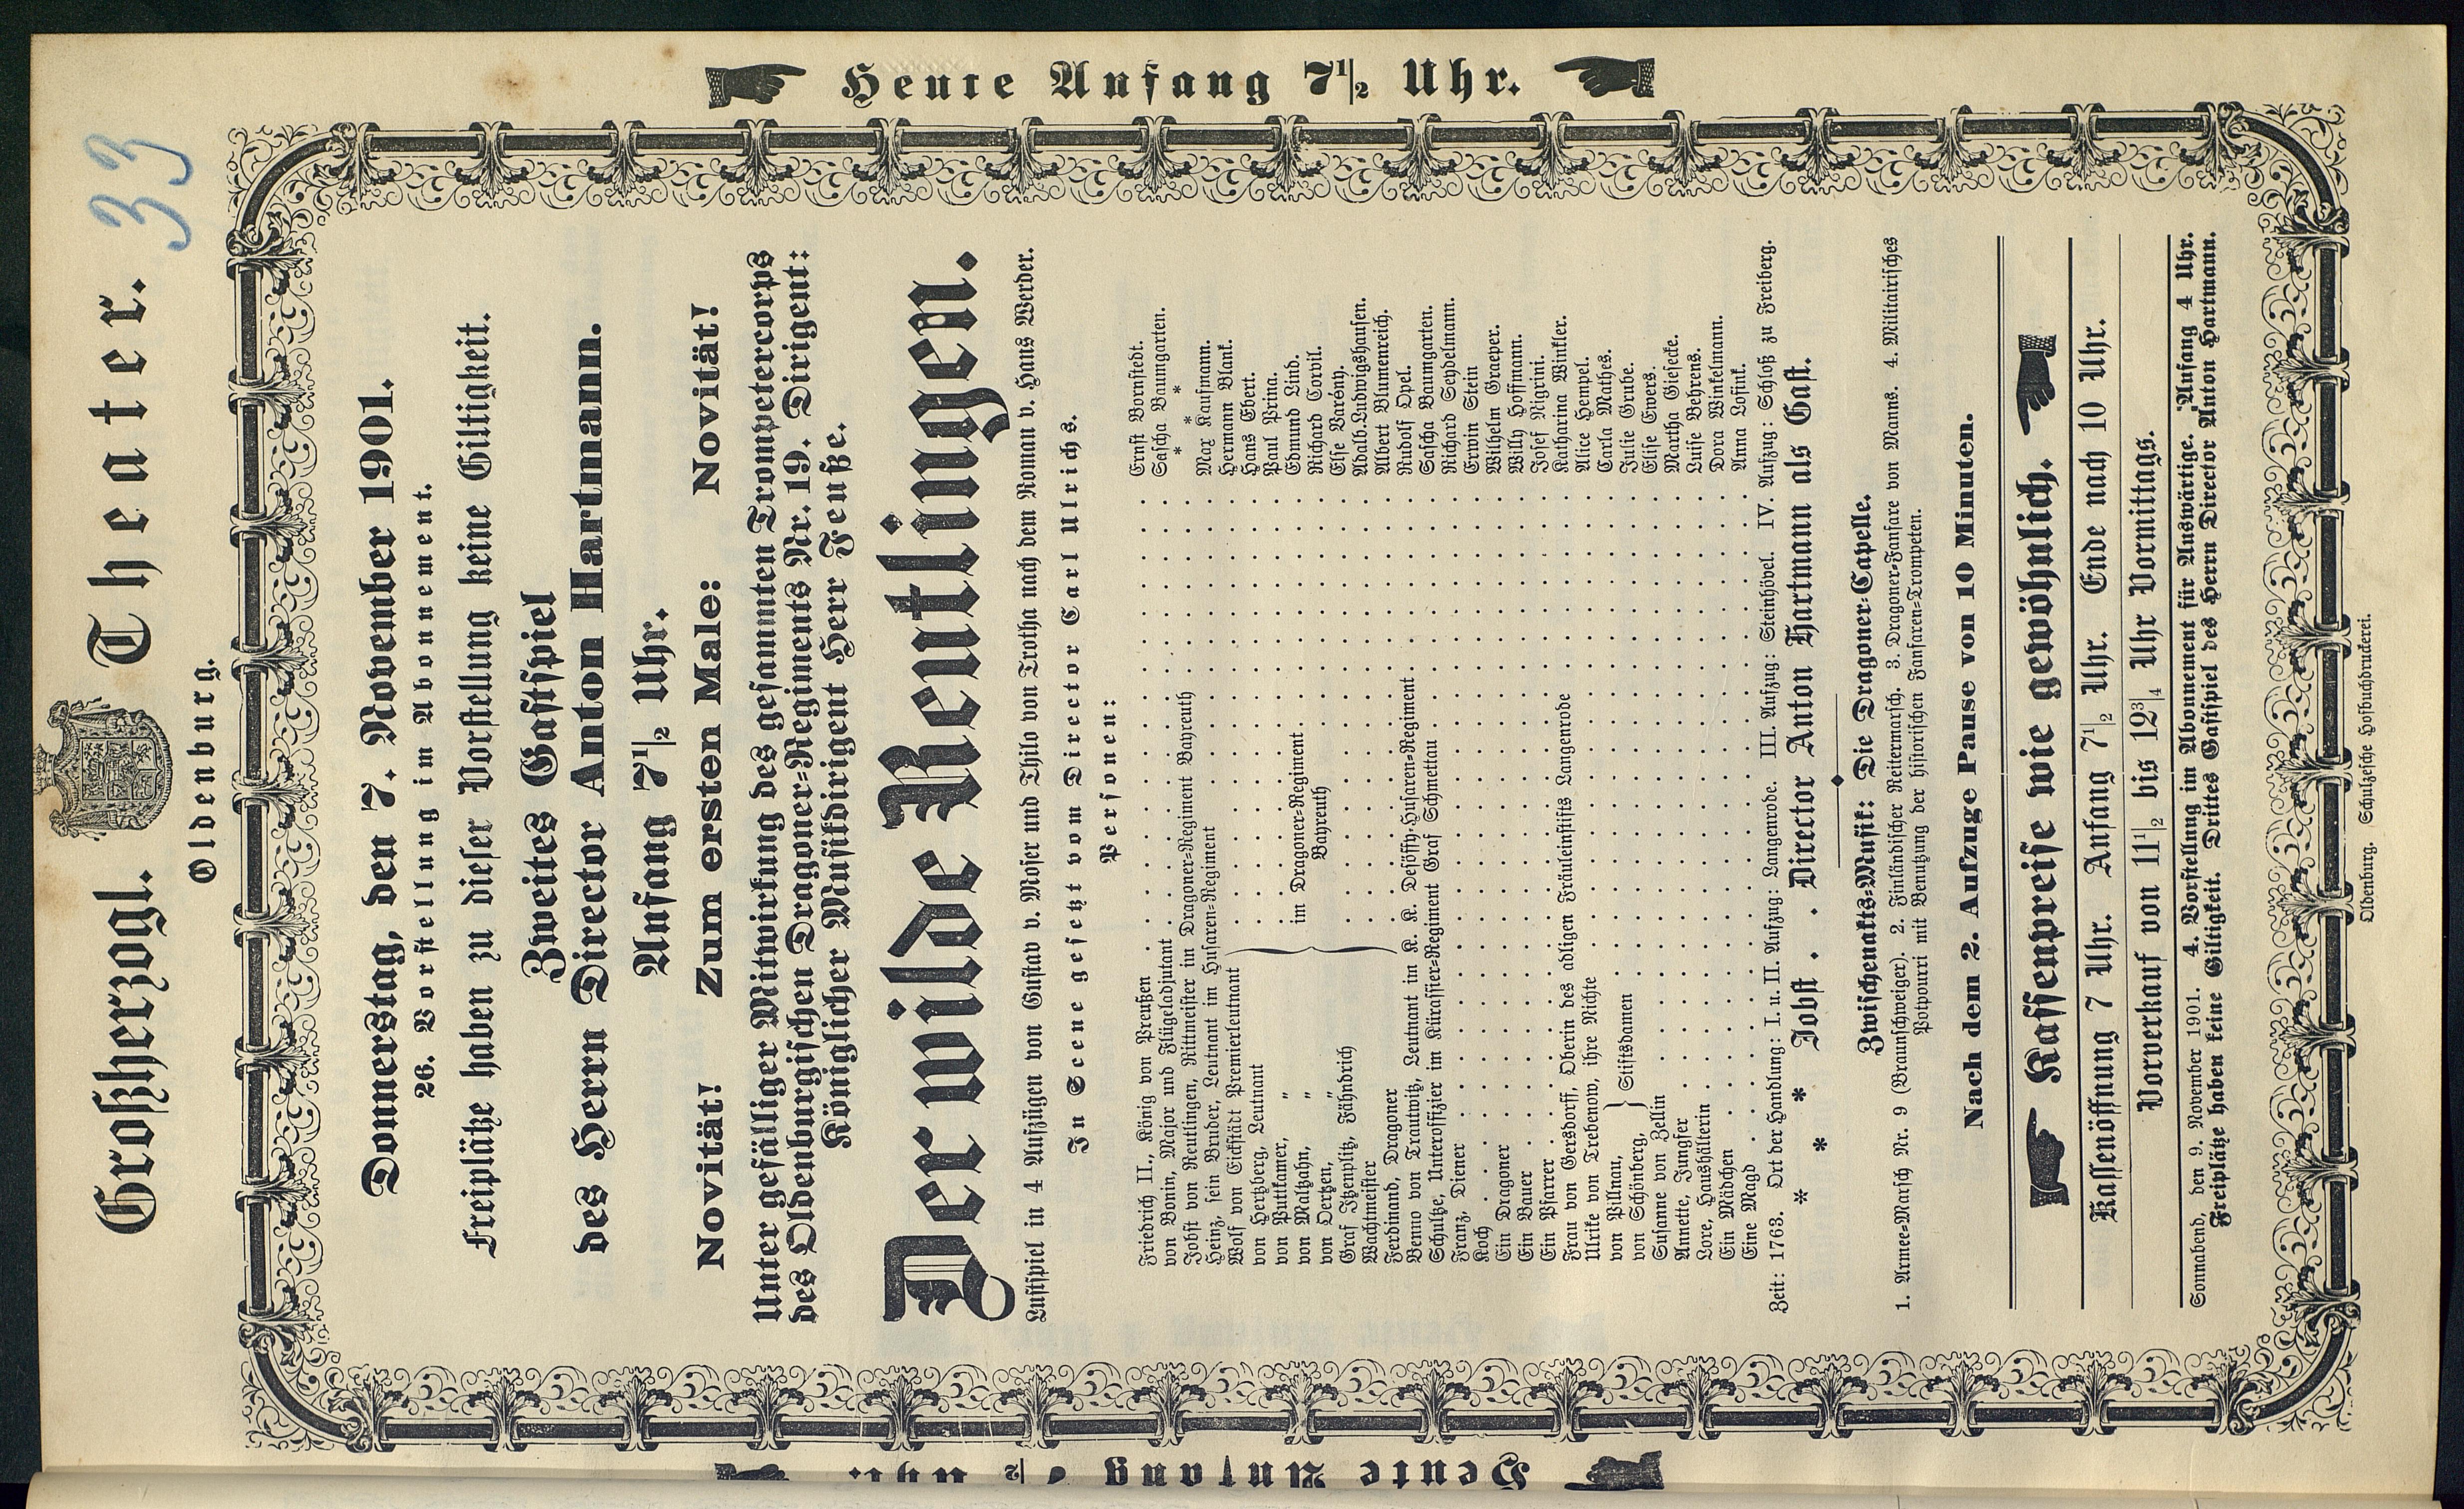 33
Großherzogl. Theater.
Oldenburg.
Heute Anfang 7½ Uhr.
Heute Anfang 7½ Uhr.
Donnerstag, den 7. November 1901.
26. Vorstellung im Abonnement.
Freiplätze haben zu dieser Vorstellung keine Giltigkeit.
Zweites Gastspiel
des Herrn Director Anton Hartmann.
Anfang 7½ Uhr.
Novität! Zum ersten Male: Novität!
Unter gefälliger Mitwirkung des gesammten Trompetercorps
des Oldenburgischen Dragoner-Regiments Nr. 19. Dirigent:
Königlicher Musikdirigent Herr Feuße.
Der wilde Reutlingen.
Lustspiel in 4 Aufzügen von Gustav v. Moser und Thilo von Trotha nach dem Roman v. Hans Werder.
In Scene gesetzt vom Director Carl Ulrichs.
Personen:
Friedrich II., König von Preußen . . . Ernst Bornstedt.
von Bonin, Major und Flügeladjutant . . . Sascha Baumgarten.
Jobst von Reutlingen, Rittmeister im Dragoner-Regiment Bayreuth . . . * * *
Heinz, sein Bruder, Leutnant im Husaren-Regiment . . . Max Kaufmann.
Wolf von Eickstädt Premierleutnant . . . Hermann Blank.
von Hertzberg, Leutnant . . . Hans Ebert.
von Puttkamer, " . . . Paul Prina.
von Maltzahn, " im Dragoner-Regiment . . . Edmund Lind.
von Oertzen, " Bayreuth . . . Richard Corvil.
Graf Itzenplitz, Fähndrich . . . Else Varény.
Wachtmeister . . . Adalb. Ludwigshausen.
Ferdinand, Dragoner . . . Albert Blumenreich.
Benno von Trautwitz, Leutnant im K. K. Desöffy-Husaren-Regiment . . . Rudolf Opel.
Schultze, Unteroffizier im Kürassier-Regiment Graf Schmettau . . . Sascha Baumgarten.
Franz, Diener . . . Richard Seydelmann.
Koch . . . Erwin Stein
Ein Dragoner . . . Wilhelm Graeper.
Ein Bauer . . . Willy Hoffmann.
Ein Pfarrer . . . Josef Nigrini.
Frau von Gersdorff, Oberin des adligen Fräuleinstifts Langenrode . . . Katharina Winkler.
Ulrike von Trebenow, ihre Nichte . . . Alice Hempel.
von Pillnau, } Stiftsdamen . . . Carla Mathes.
von Schönberg, . . . Julie Grube.
Susanne von Zellin . . . Elise Ewers.
Annette, Jungfer . . . Martha Giesecke.
Lore, Haushälterin . . . Luise Behrens.
Ein Mädchen . . . Dora Winkelmann.
Eine Magd . . . Anna Lostink.
Zeit: 1763. Ort der Handlung: I. u. II. Aufzug: Langenrode. III. Aufzug: Steinhövel. IV. Aufzug: Schloß zu Freiberg.
* * * Jobst . . Director Anton Hartmann als Gast.
Zwischenakts-Musik: Die Dragoner-Capelle.
1. Armee-Marsch Nr. 9 (Braunschweiger). 2. Finländischer Reitermarsch. 3. Dragoner-Fanfare von Manns. 4. Militairisches
Potpourri mit Benutzung der historischen Fanfaren-Trompeten.
Nach dem 2. Aufzuge Pause von 10 Minuten.
Kassenpreise wie gewöhnlich.
Kassenöffnung 7 Uhr. Anfang 7½ Uhr. Ende nach 10 Uhr.
Vorverkauf von 11½ bis 12¾ Uhr Vormittags.
Sonnabend, den 9. November 1901. 4. Vorstellung im Abonnement für Auswärtige. Anfang 4 Uhr.
Freiplätze haben keine Giltigkeit. Drittes Gastspiel des Herrn Director Anton Hartmann.
Oldenburg. Schulzesche Hofbuchdruckerei.